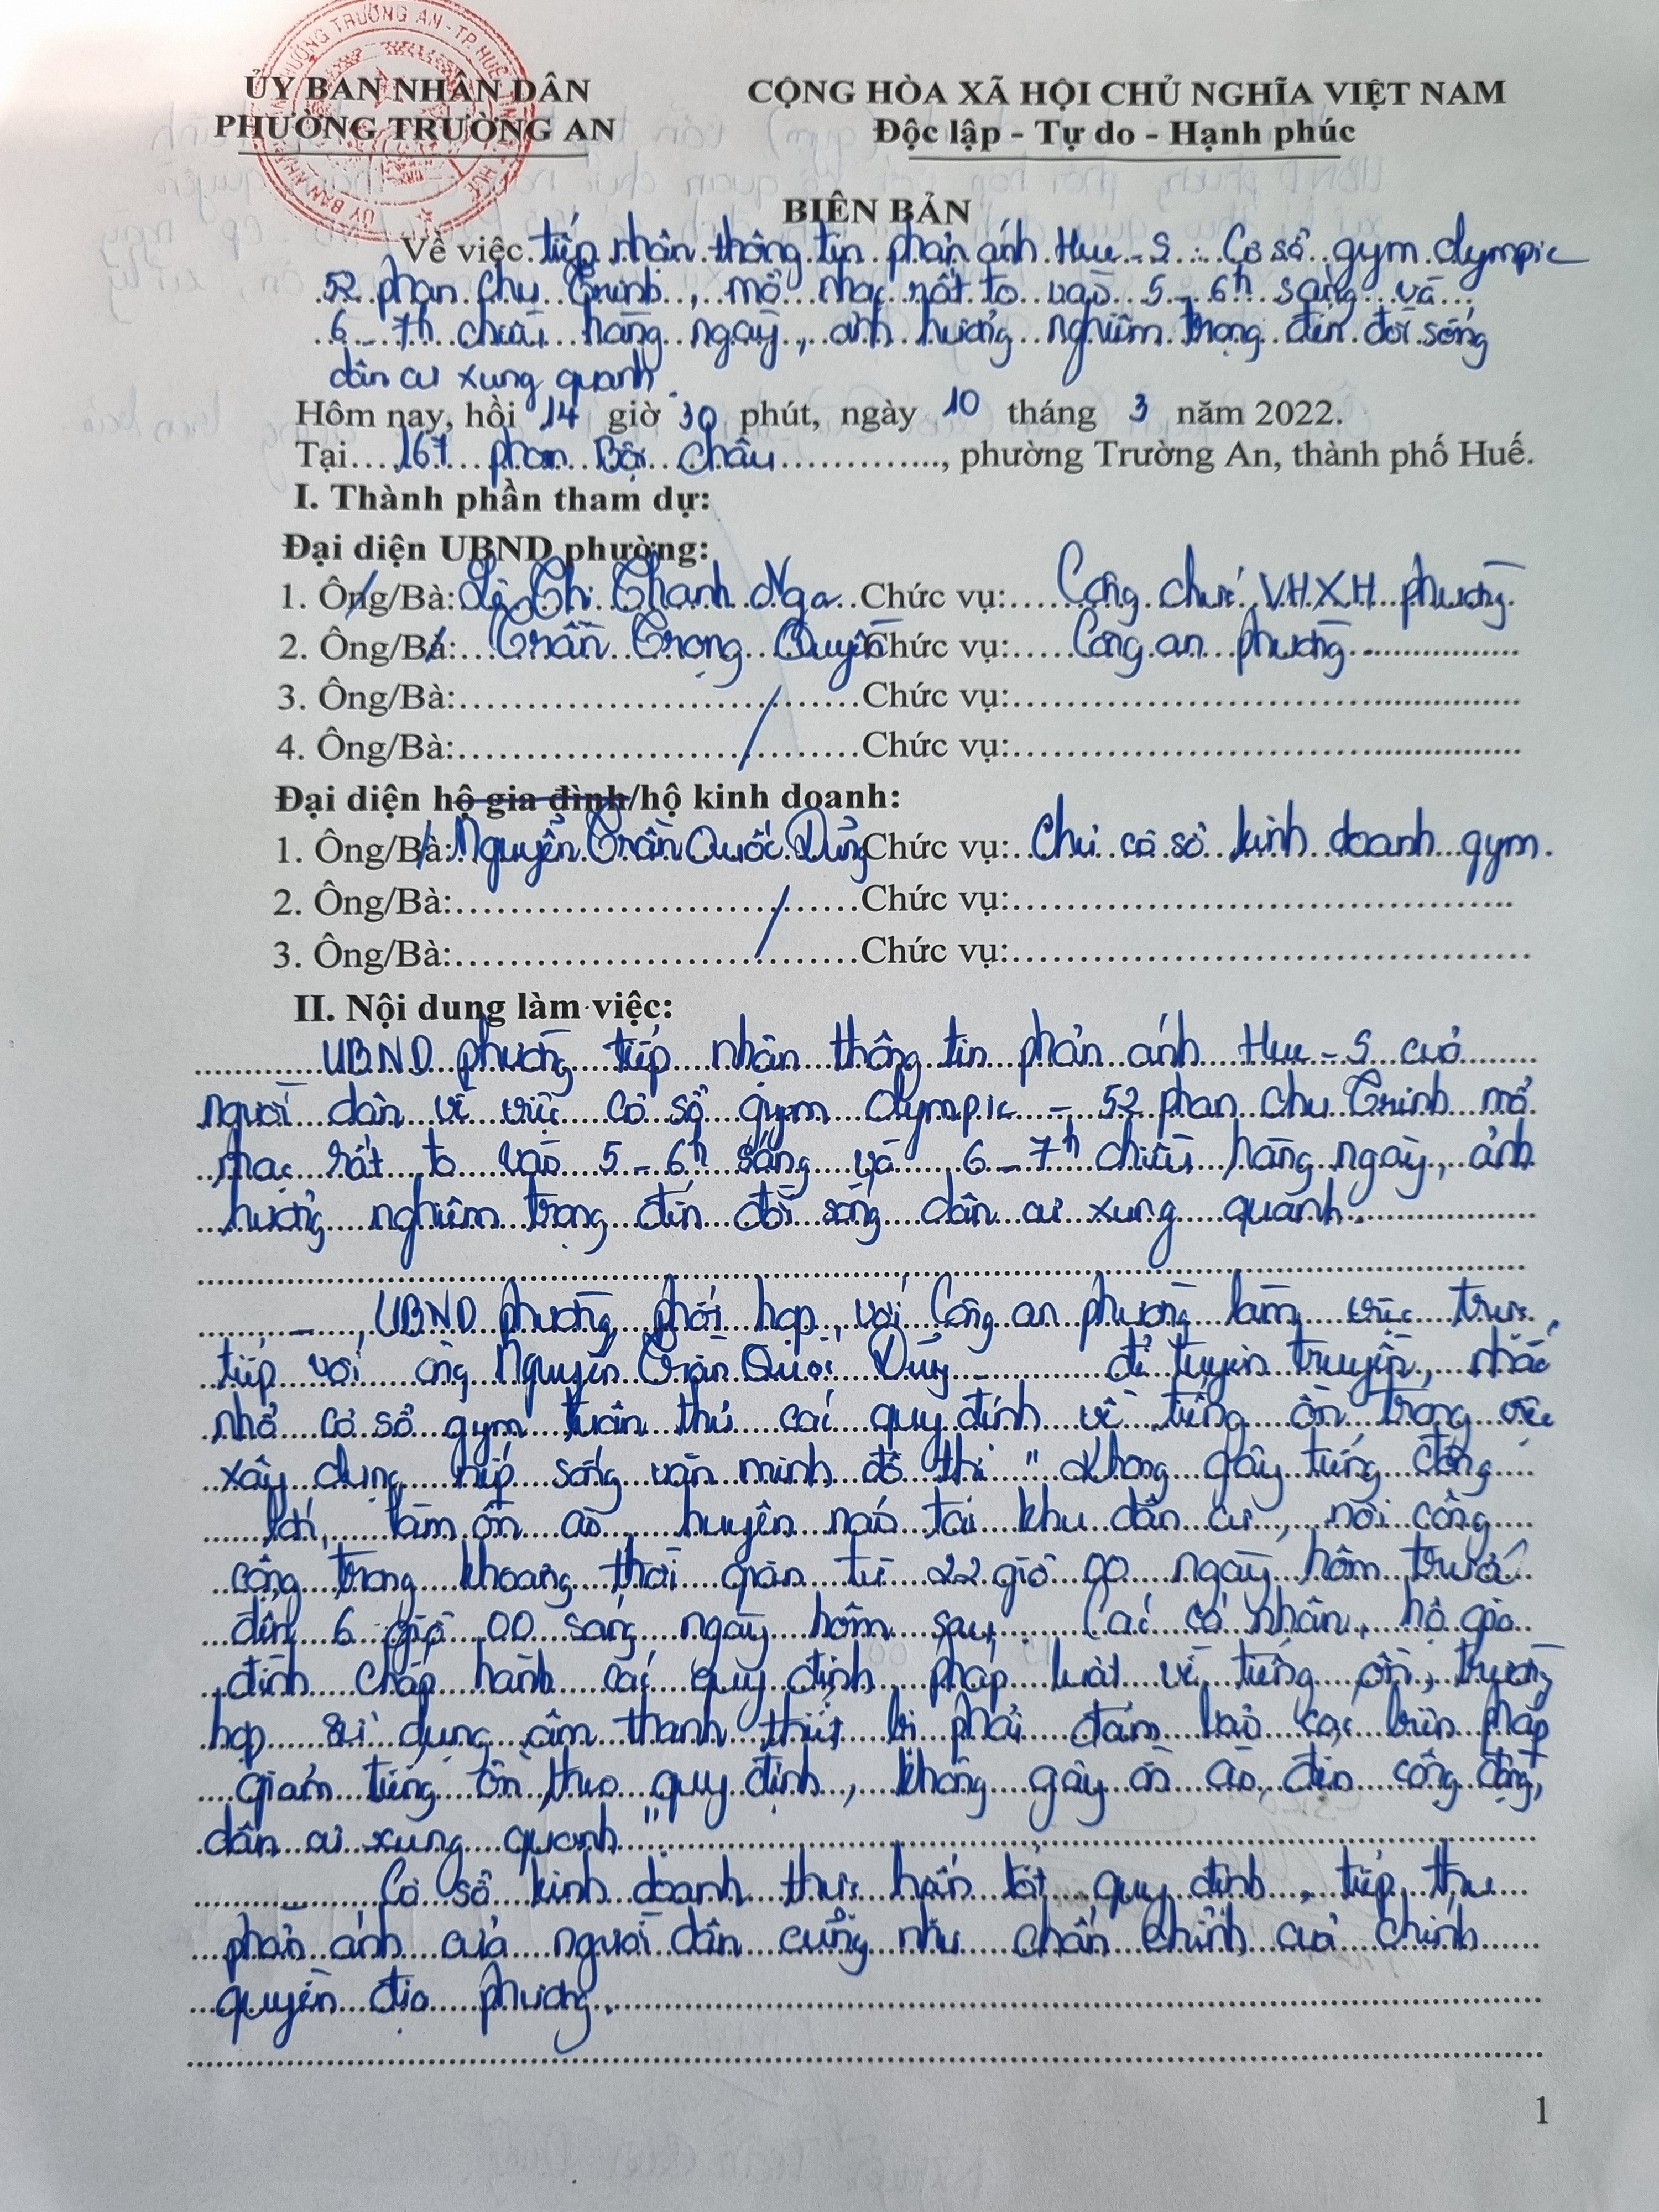 ỦY BAN NHÂN DÂN
PHƯỜNG TRƯỜNG AN
CỘNG HÒA XÃ HỘI CHỦ NGHĨA VIỆT NAM
Độc lập - Tự do - Hạnh phúc
BIÊN BẢN
Về việc tiếp nhận thông tin phản ánh Hue-S. Cơ sở gym Olympic
52 Phan Chu Trinh, mở nhạc rất to vào 5-6h sáng và
6-7h chiều hàng ngày, ảnh hưởng nghiêm trọng đến đời sống
dân cư xung quanh.
Hôm nay, hồi 14 giờ 30 phút, ngày 10 tháng 3 năm 2022.
Tại 167 Phan Bội Châu, phường Trường An, thành phố Huế.
I. Thành phần tham dự:
Đại diện UBND phường:
1. Ông/Bà: Lê Thị Thanh Nga Chức vụ: Công chức VHXH phường
2. Ông/Bà: Trần Trọng Quyền Chức vụ: Công an phường
3. Ông/Bà: Chức vụ:
4. Ông/Bà: Chức vụ:
Đại diện hộ gia đình/hộ kinh doanh:
1. Ông/Bà: Nguyễn Trần Quốc Dũng Chức vụ: Chủ cơ sở kinh doanh gym.
2. Ông/Bà: Chức vụ:
3. Ông/Bà: Chức vụ:
II. Nội dung làm việc:
UBND phường tiếp nhận thông tin phản ánh Hue-S của
người dân về việc cơ sở gym Olympic - 52 Phan Chu Trinh mở
nhạc rất to vào 5-6h sáng và 6-7h chiều hàng ngày, ảnh
hưởng nghiêm trọng đến đời sống dân cư xung quanh.
- UBND phường phối hợp với Công an phường làm việc trực
tiếp với ông Nguyễn Trần Quốc Dũng để tuyên truyền, nhắc
nhở cơ sở gym tuân thủ các quy định về tiếng ồn trong việc
xây dựng nếp sống văn minh đô thị "Không gây tiếng động
làm ồn ào, huyên náo tại khu dân cư, nơi công
cộng trong khoảng thời gian từ 22 giờ 00 ngày hôm trước
đến 6 giờ 00 sáng ngày hôm sau. Các cá nhân, hộ gia
đình chấp hành các quy định pháp luật về tiếng ồn, trường
hợp sử dụng âm thanh thiết bị phải đảm bảo các biện pháp
giảm tiếng ồn theo quy định, không gây ồn ào đến cộng đồng,
dân cư xung quanh".
Cơ sở kinh doanh thực hiện tốt quy định, tiếp thu
phản ánh của người dân cũng như chấn chỉnh của chính
quyền địa phương.
1